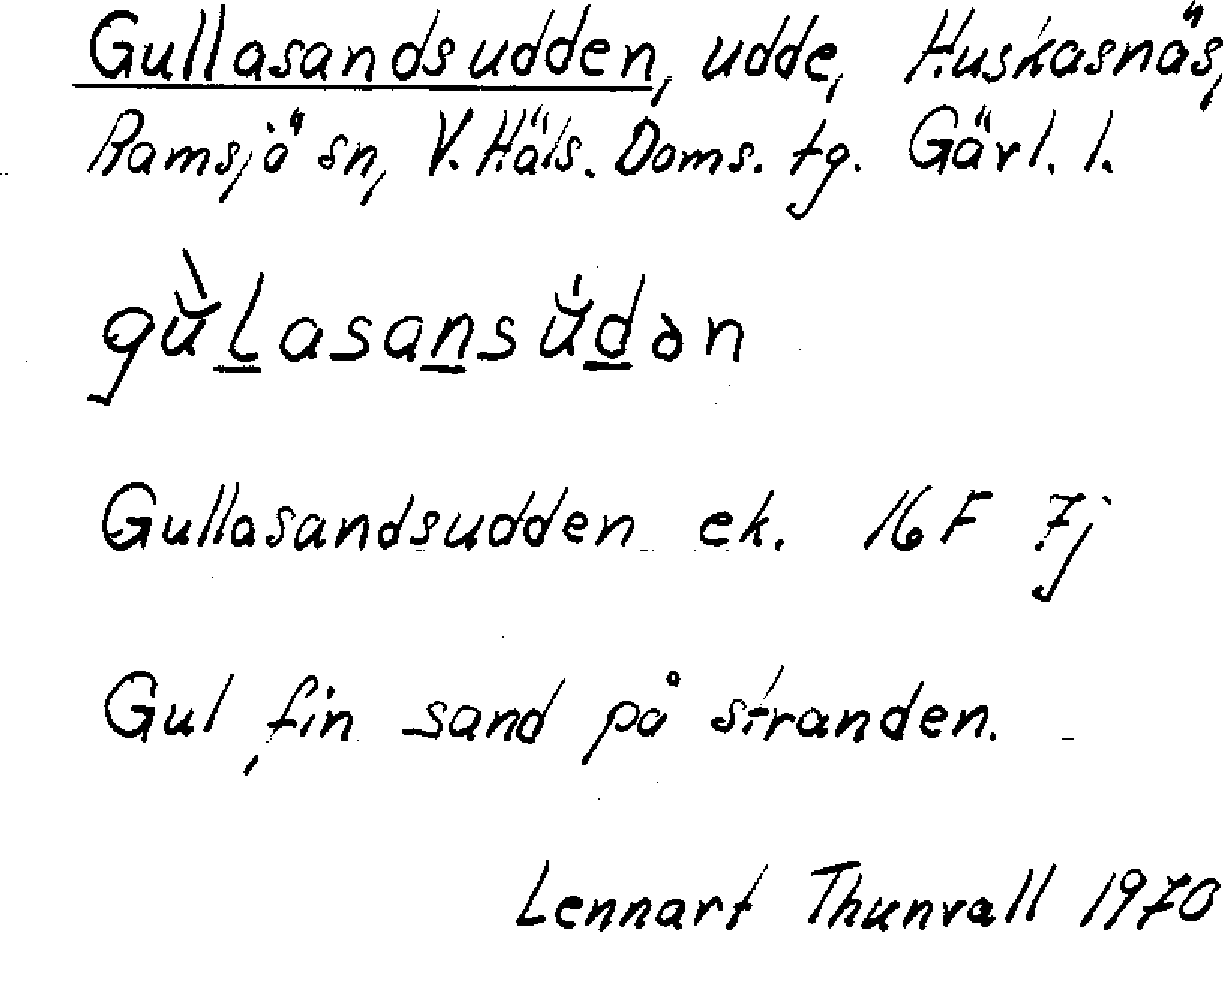 Gullasandsudden, udde, Huskasnäs,
Ramsjö sn, V. Häls. Doms. tg. Gävl. l.
gu̇̀lasansu̇́dən
Gullasandsudden ek. 16 F 7j
Gul, fin sand på stranden.
Lennart Thunvall 1970